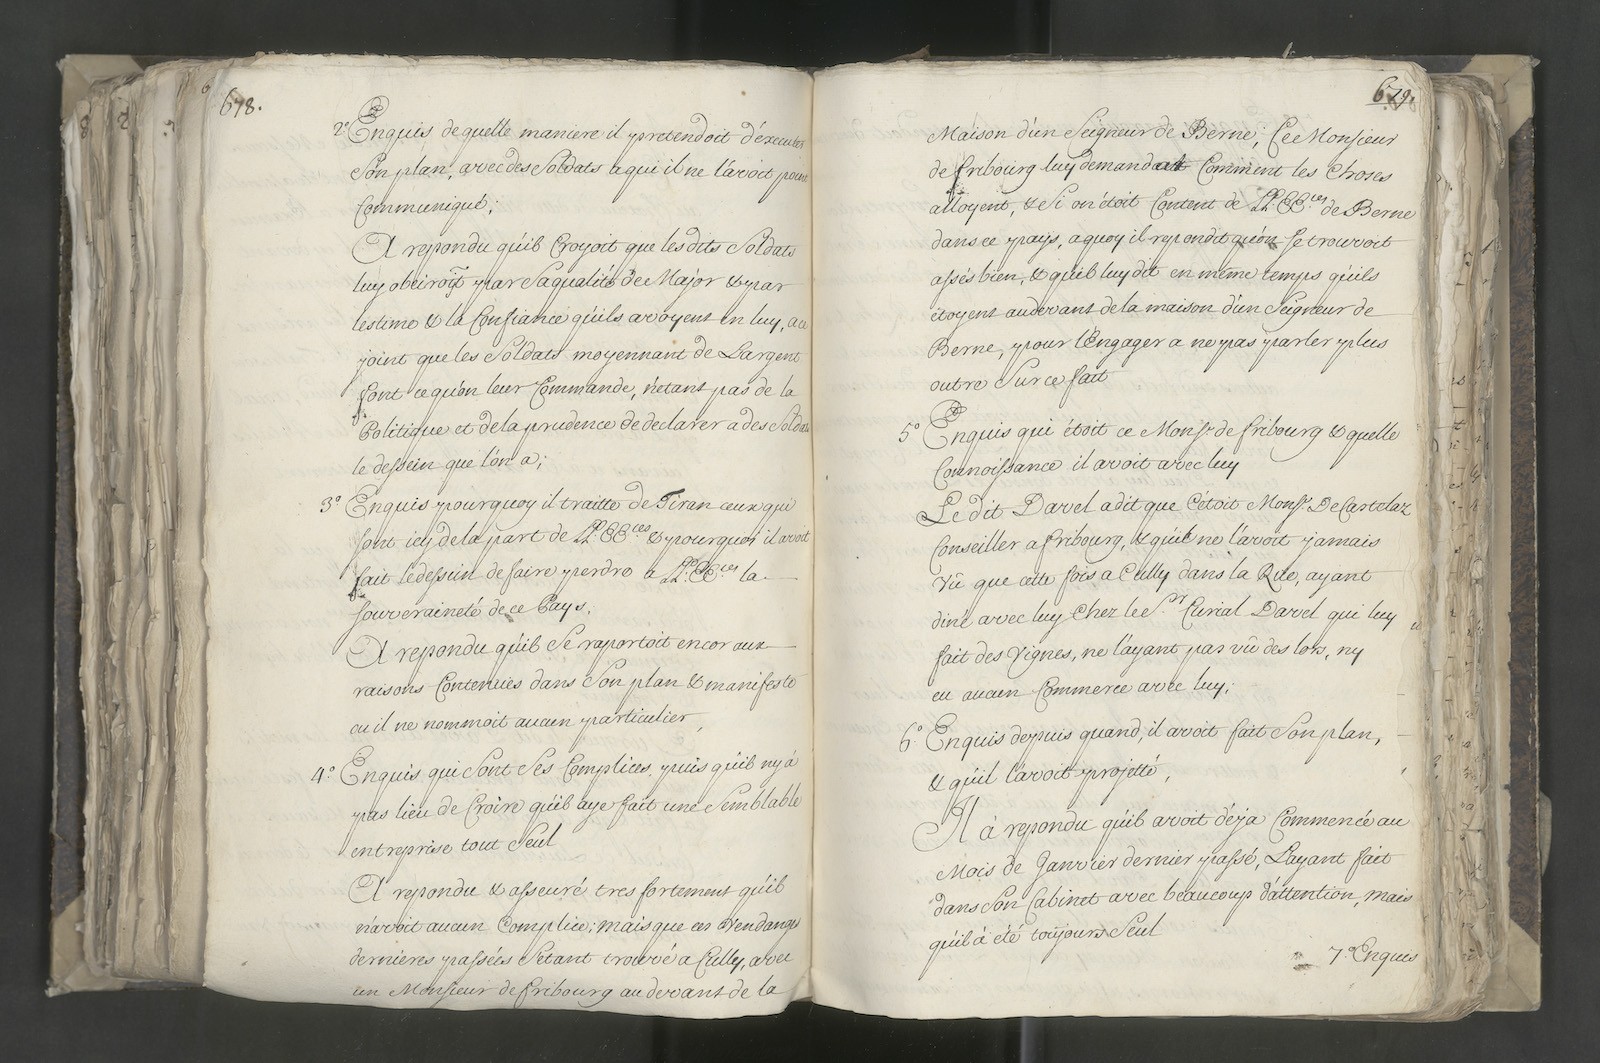 678.
2.º Enquis de quelle maniere il pretendoit d'éxecuter
Son plan, avec des Soldats a qui il ne l'avoit point
Communiqué;
A repondu qu'il Croyoit que les dits Soldats
luy obeiroit par Sa qualité de Major & par
lestime & la Confiance qu'ils avoyent en luy, a ce
joint que les Soldats moyennant de Largent
font ce qu'on leur Commande, n'etant pas de la
Politique et de la prudence de declarer a des Soldats
le dessein que l'on a;
3.º Enquis pourquoy il traitte de Tiran ceux qui
sont icy de la part de LL. EE.ces & pourquoi il avoit
fait le dessein de faire perdre a LL. EE.ces la
souveraineté de ce Pays.
A repondu qu'il Se raportoit encor aux
raisons Contenues dans Son plan & manifeste
ou il ne nommoit aucun particulier,
4.º Enquis qui Sont Ses Complices, puis qu'il ny à
pas lieu de Croire qu'il aye fait une Semblable
entreprise tout Seul
A repondu & asseuré tres fortement qu'il
n'avoit aucun Complice; mais que en Vendanges
dernieres passées S'etant trouvé a Cully, avec
un Monsieur de fribourg au devant de la
679.
Maison d'un Seigneur de Berne; Ce Monsieur
de fribourg luy demandat Comment les Choses
alloyent, & Si on étoit Content de LL. EE.ces de Berne
dans ce pays, a quoy il repondit qu'on se trouvoit
assés bien, & qu'il luy dit en même temps qu'ils
étoyent au devant de la maison d'un Seigneur de
Berne, pour l'Engager a ne pas parler plus
outre Sur ce fait
5.º Enquis qui étoit ce Monsr. de fribourg & quelle
Connoissance il avoit avec luy
Le dit Davel a dit que C'étoit Monsr. De Castelaz
Conseiller a fribourg, & qu'il ne l'avoit jamais
vû que cette fois a Cully dans la Rüe, ayant
diné avec luy Chez le Sr. Curial Davel qui luy
fait des Vignes, ne l'ayant pas vû des lors, ny
eu aucun Commerce avec luy;
6.º Enquis depuis quand, il avoit fait Son plan,
& qu'il l'avoit projetté,
Il à repondu qu'il avoit déja Commencé au
Mois de Janvier dernier passé, L'ayant fait
dans Son Cabinet avec beaucoup d'attention, mais
qu'il à été toujours Seul
7.º Enquis